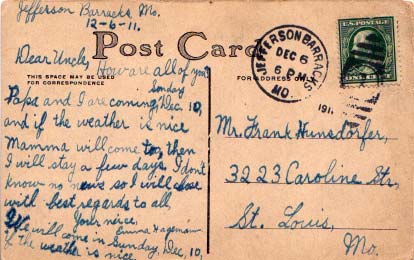 Jefferson Barracks, Mo.
12-6-11.
Post Card
Dear Uncle,
How are all of you?
THIS SPACE MAY BE USED
FOR CORRESPONDENCE
FOR ADDRESS ON
Sunday
Papa and I are coming, Dec. 10,
and if the weather is nice
Mamma will come too, then
I will stay a few days. I don't
know no news so I will close
with best regards to all
Your neice,
Emma Hageman
We will come in Sunday, Dec, 10,
if the weather is nice
JEFFERSON BARRACKS
DEC 6
6 PM
MO.
191
U.S. POSTAGE
ONE CENT
Mr. Frank Hunsdorfer,
3223 Caroline Str,
St. Louis,
Mo.